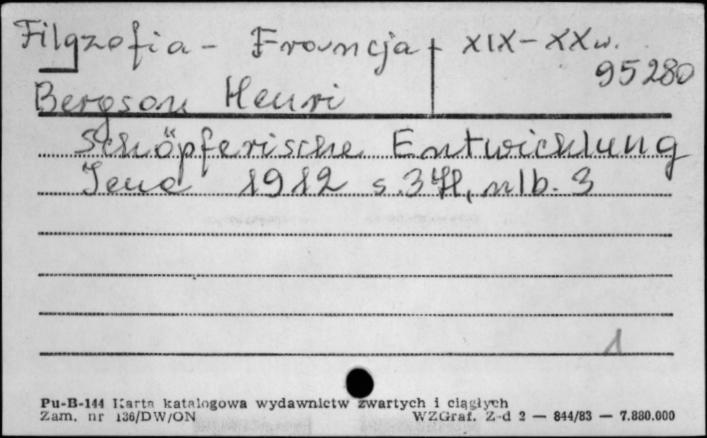 Filozofia - Francja XIX-XX w.
95280
Bergson Henri
Schöpferische Entwicklung
Jena 1912 s. nlb. 3
1
Pu-B-144 Karta katalogowa wydawnictw zwartych i ciągłych
Zam. nr 136/DW/ON WZGraf. Z-d 2 — 844/83 — 7.880.000